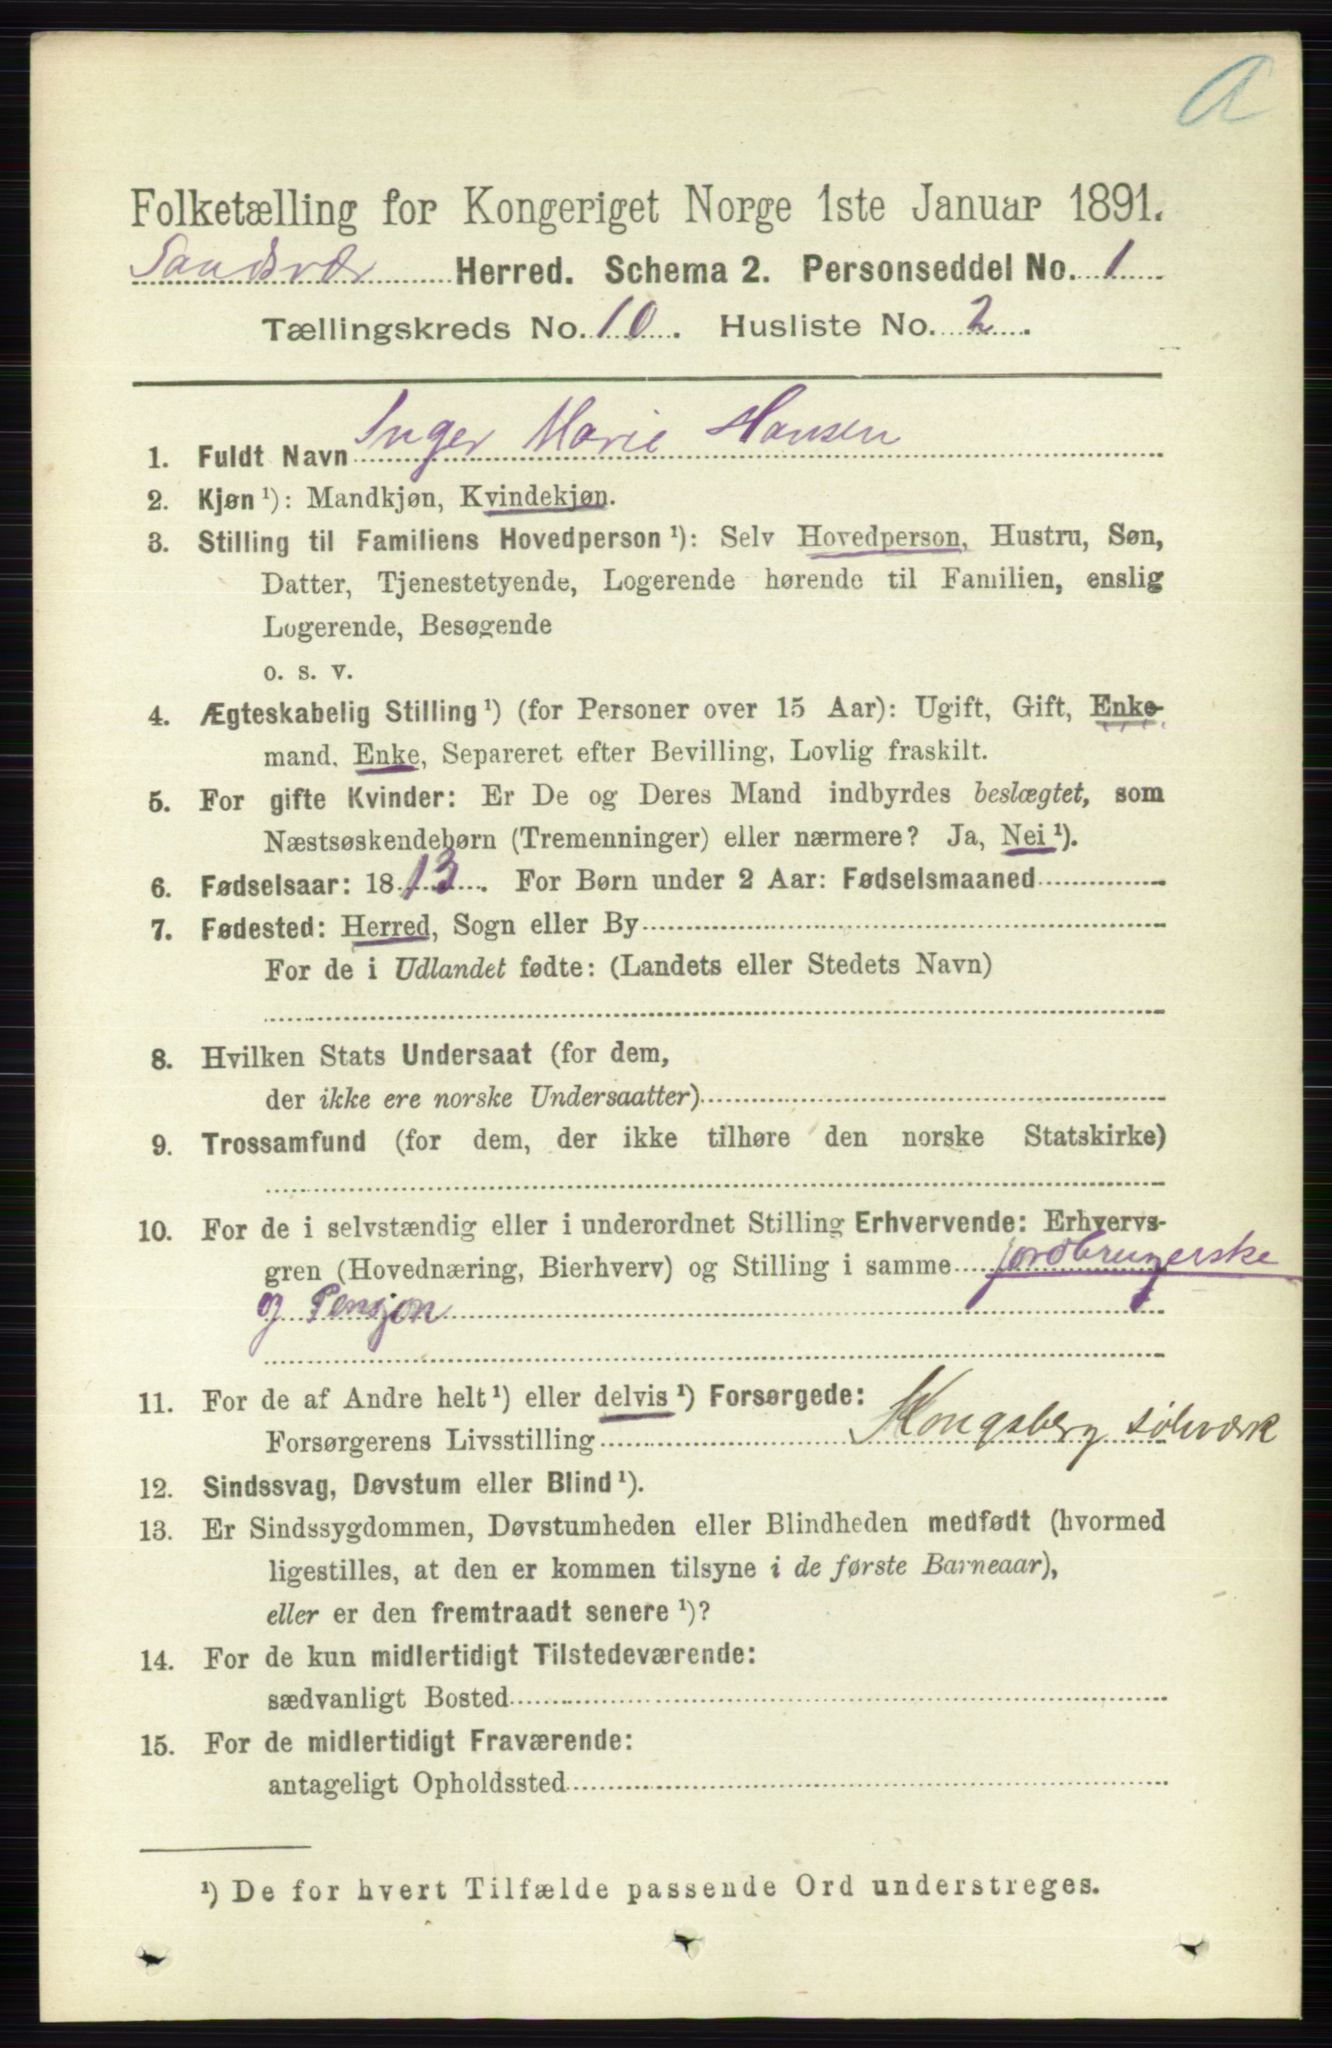 A
Folketælling for Kongeriget Norge 1ste Januar 1891.
Sandsvær Herred. Schema 2. Personseddel No. 1
Tællingskreds No. 10. Husliste No. 2.
1. Fuldt Navn Inger Marie Hansen
2. Kjøn¹): Mandkjøn, Kvindekjøn.
3. Stilling til Familiens Hovedperson¹): Selv Hovedperson, Hustru, Søn,
Datter, Tjenestetyende, Logerende hørende til Familien, enslig
Logerende, Besøgende
o. s. v.
4. Ægteskabelig Stilling¹) (for Personer over 15 Aar): Ugift, Gift, Enke-
mand, Enke, Separeret efter Bevilling, Lovlig fraskilt.
5. For gifte Kvinder: Er De og Deres Mand indbyrdes beslægtet, som
Næstsøskendebørn (Tremenninger) eller nærmere? Ja, Nei¹).
6. Fødselsaar: 1813. For Børn under 2 Aar: Fødselsmaaned
7. Fødested: Herred, Sogn eller By
For de i Udlandet fødte: (Landets eller Stedets Navn)
8. Hvilken Stats Undersaat (for dem,
der ikke ere norske Undersaatter)
9. Trossamfund (for dem, der ikke tilhøre den norske Statskirke)
10. For de i selvstændig eller i underordnet Stilling Erhvervende: Erhvervs-
gren (Hovednæring, Bierhverv) og Stilling i samme jordbrugerske
og Pensjon
11. For de af Andre helt¹) eller delvis¹) Forsørgede:
Forsørgerens Livsstilling Kongsberg sølvværk
12. Sindssvag, Døvstum eller Blind¹).
13. Er Sindssygdommen, Døvstumheden eller Blindheden medfødt (hvormed
ligestilles, at den er kommen tilsyne i de første Barneaar),
eller er den fremtraadt senere¹)?
14. For de kun midlertidigt Tilstedeværende:
sædvanligt Bosted
15. For de midlertidigt Fraværende:
antageligt Opholdssted
¹) De for hvert Tilfælde passende Ord understreges.